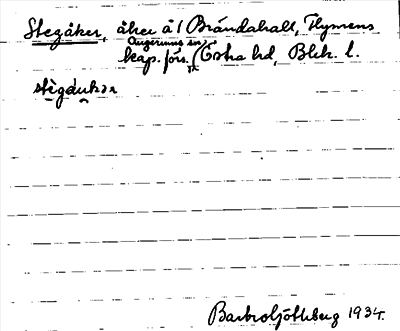 Stegåker, åker å 1 Brändahall, Flymens
Augerums sn
kap. förs. Östra hd, Blek. l.
stègáukər
Barbro Göthberg 1934.